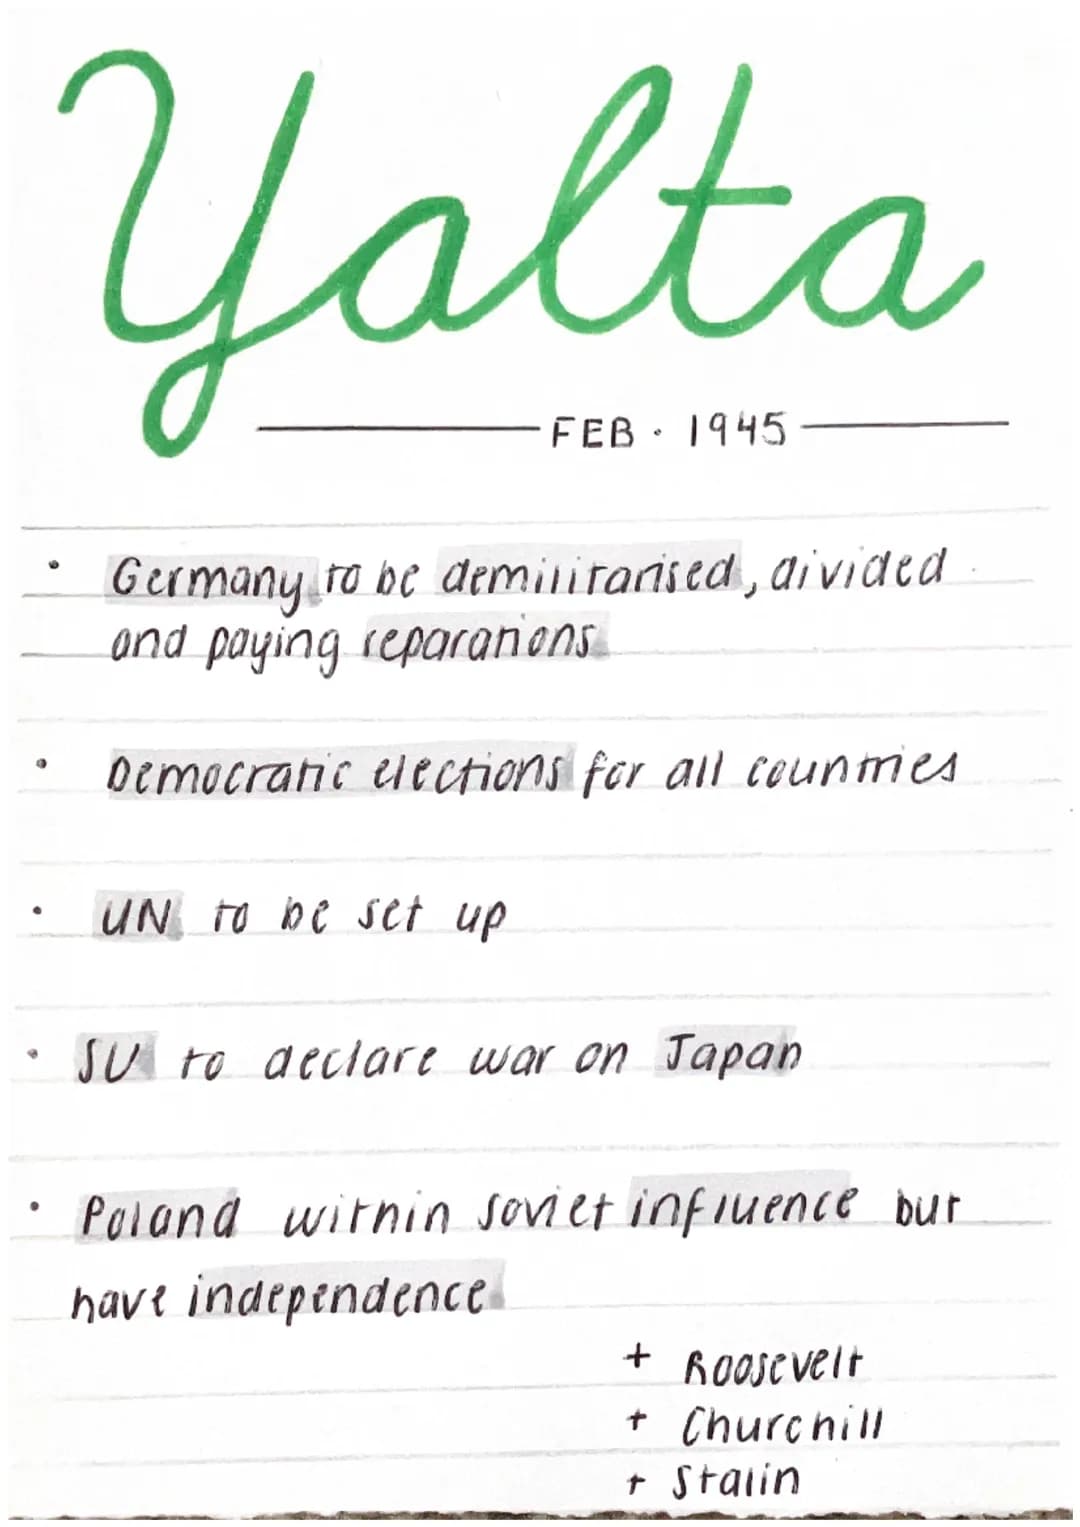 Yalta
FEB. 1945
• Germany to be demilitarised, divided
and paying reparations
• Democratic elections for all countries
• UN to be set up
• SU to declare war on Japan
• Poland within soviet influence but
have independence
+ Roosevelt
+ Churchill
+ Stalin